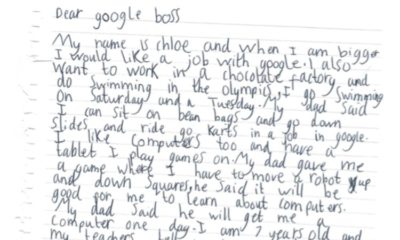 Dear google boss
My name is chloe and when I am bigger
I would like a job with google. I also
want to work in a chocolate factory and
do swimming in the olympics. I go swimming
on Saturday and a Tuesday. My dad said
I can sit on bean bags and go down
slides and ride go karts in a job in google.
I like computers too and have a
tablet I play games on. My dad gave me
a game where I have to move a robot up
and down squares, he said it will be
good for me to learn about computers.
My dad said he will get me a
computer one day. I am 7 years old and
my teachers